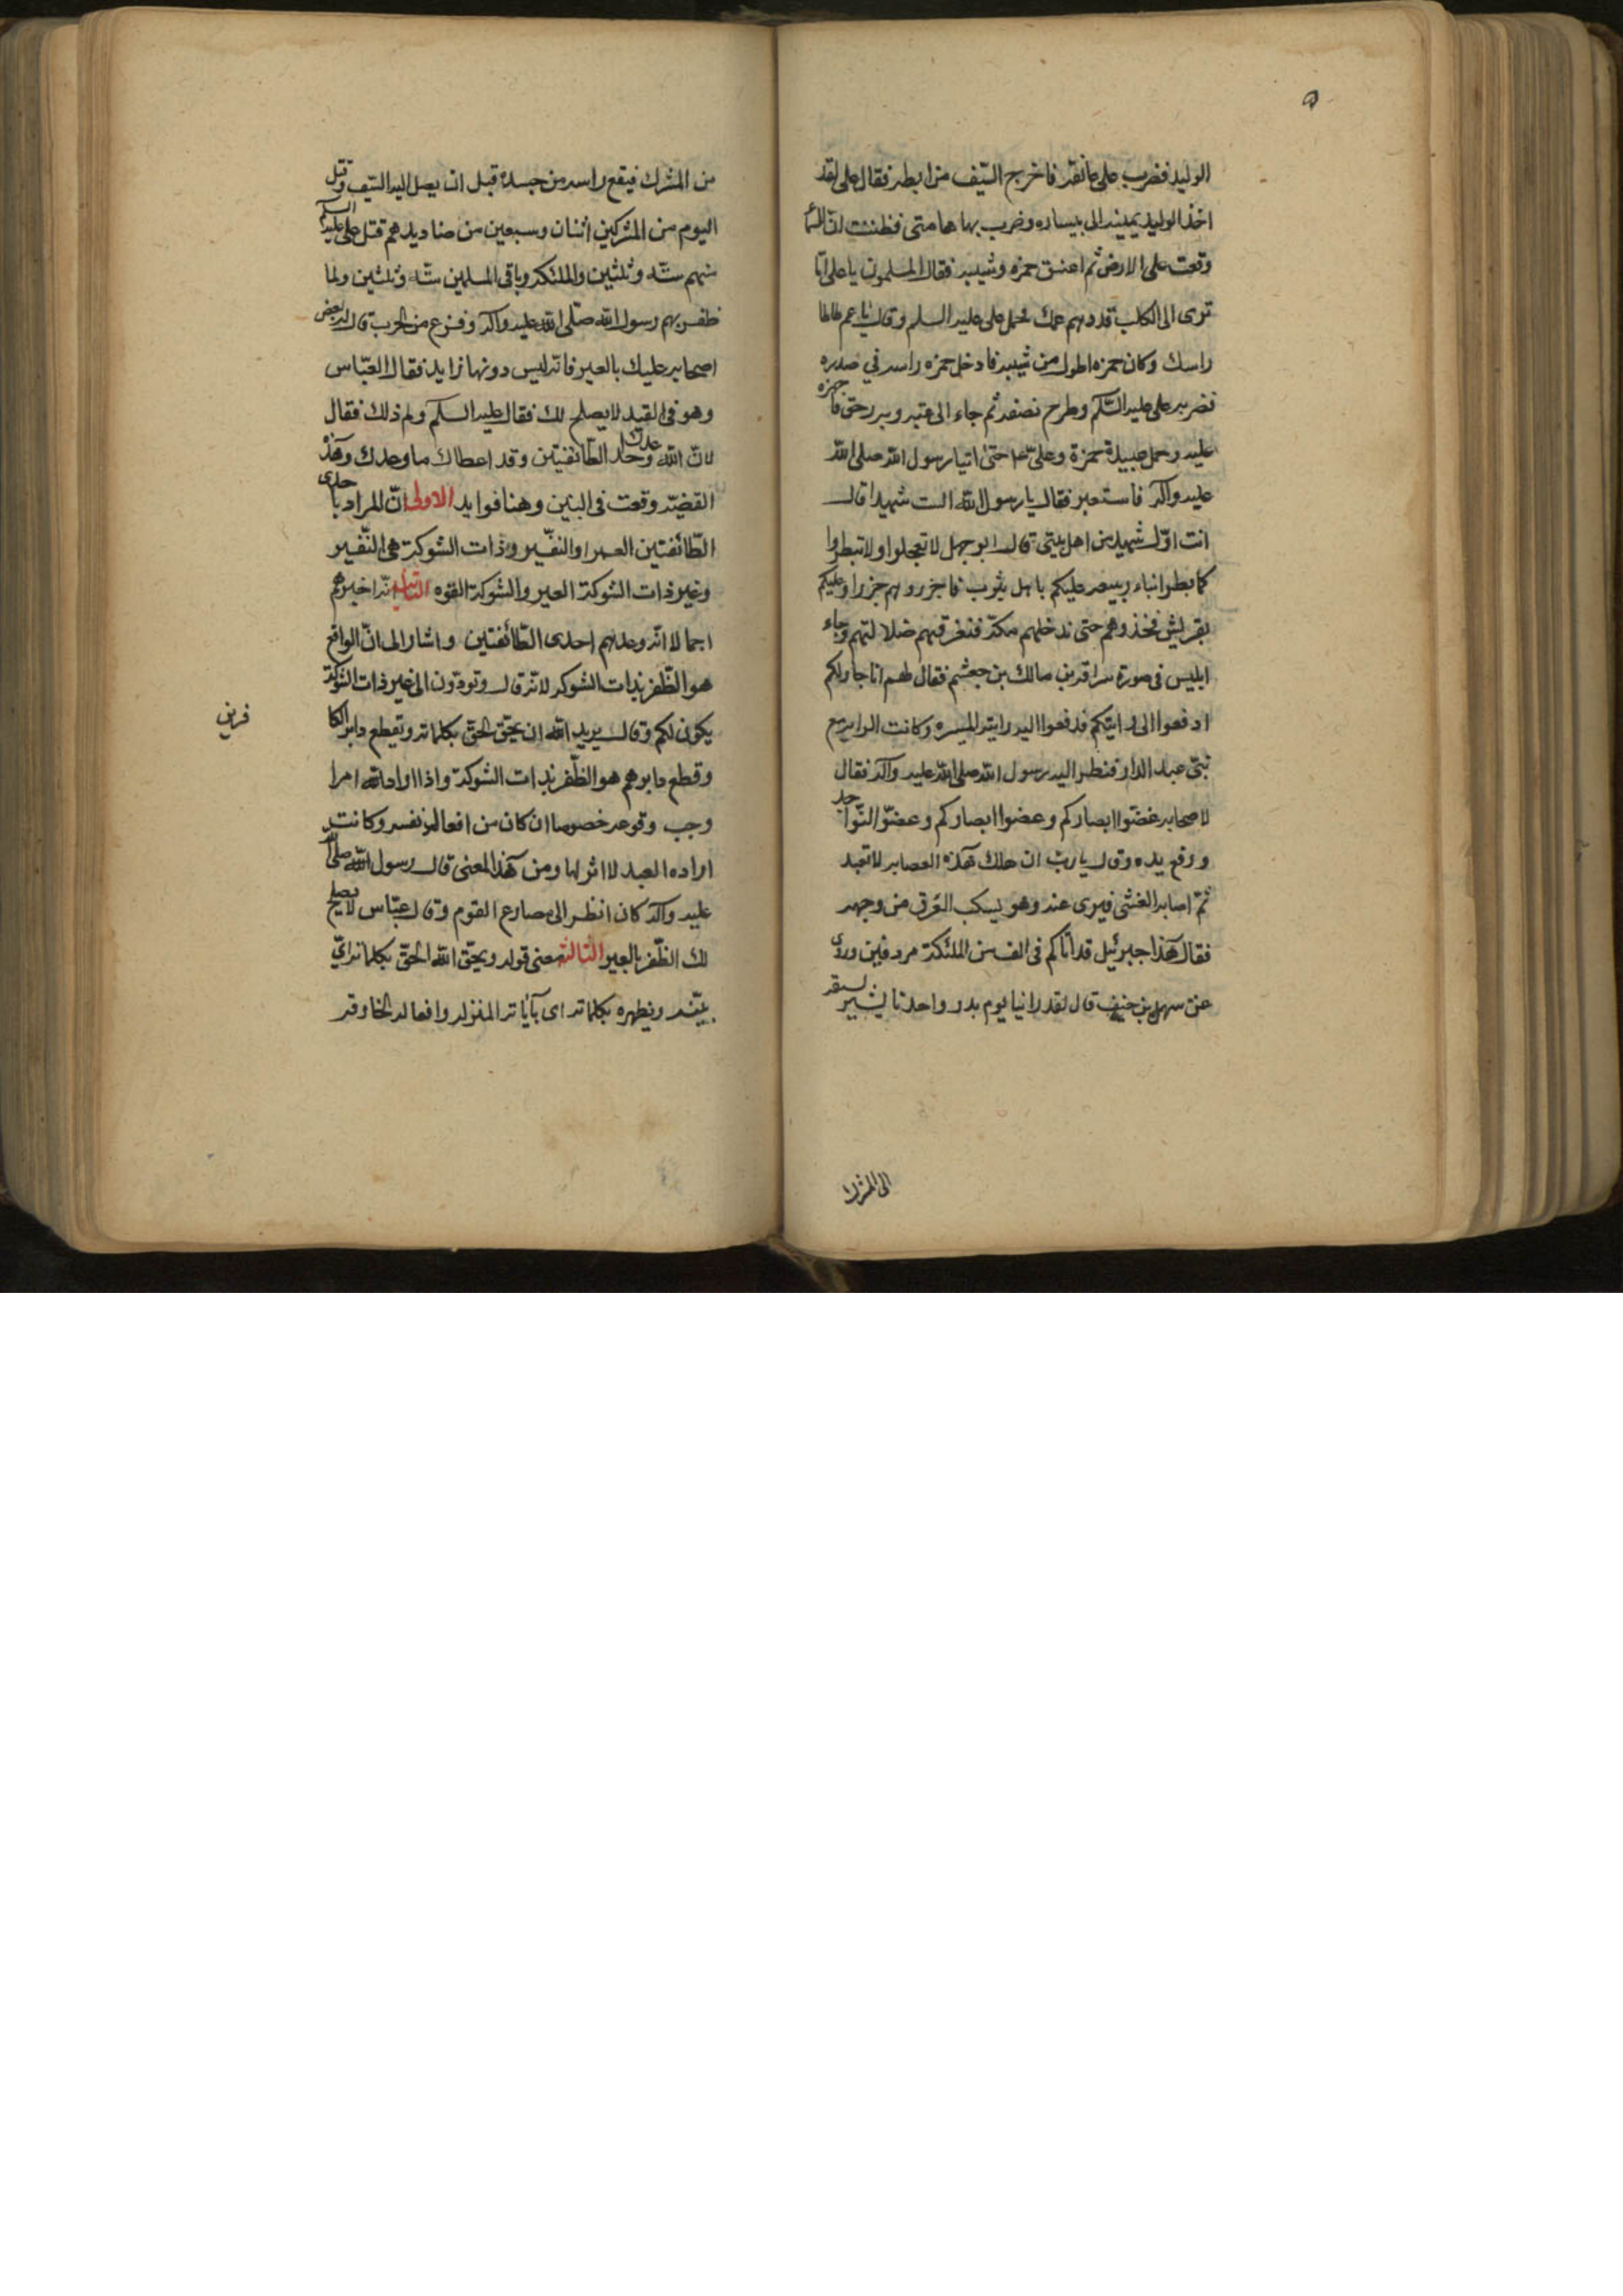 الوليد فضرب على عاتقه فاخرج السّيف من ابطه فقال على لقد
اخذ الوليد يمينه الى بيساره وضرب بها هامتى فظننت انّ السّما
وقعت على الارض ثم اعتنق حمزه وشيبه فقال المسلمون يا على اتا
ترى الى الكلب قد عمك فحمل على عليه السلم وقال يا عم طاطا
راسك وكان حمزه اطول من شيبه فادخل حمزه راسه في صدره
فضربه على عليه السّلام وطرح نصفه ثم جاء الى عتبه وبه رمق فاجهزه
عليه وحمل عبيدة حمزة وعلىّ ع حتى اتيا رسول الله صلى الله
عليه وآله فاستعبر فقال يا رسول الله الست شهيدا قال
انت اوّل شهيد من اهل بيتى قال ابو جهل لا تعجلوا ولا تبطروا
كما بطر ابناء ربيعه عليكم باهل يثرب فاجزروهم جزرا وعليكم
بقريش فخذوهم حتى ندخلهم مكة فنعرفهم ضلالتهم وجاء
ابليس فى صورة سراقه بن مالك بن جعشم فقال لهم انا جار لكم
ادفعوا الى رايتكم فدفعوا اليه راية الميسره وكانت الرايه مع
بنى عبد الدار فنظر اليه رسول الله صلى الله عليه وآله فقال
لاصحابه غضّوا ابصاركم وعضوا ابصاركم وعضوّا النّواجد
ورفع يده وقال يا ربّ ان هلك هذه العصابه لا تعبد
ثمّ اصابه الغشى فسرى عنه وهو يسكب العَرَق من وجهه
فقال هذا جبرئيل قد اتاكم فى الف من الملئكة مردفين وروى
عن سهل بن حنيف قال لقد راينا يوم بدر واحدنا يشير بسيفه
الى المشرك
من المشرك فيقع راسه من جسده قبل ان يصل اليه السّيف وقتل
اليوم من المشركين اثنان وسبعين من صناديدهم قتل على عليه السلم
منهم ستّه وثلثين والملئكه وباقى المسلمين ستّه وثلثين ولما
ظفر بهم رسول الله صلّى الله عليه وآله وفرغ من الحرب قال له بعض
اصحابه عليك بالعير فانه ليس دونها زايد فقال العبّاس
وهو فى القيد لا يصلح لك فقال عليه السلام ولم ذلك فقال
لانّ الله وعدك احد الطّائفتين وقد اعطاك ما وعدك وهذه
القضيّه وقعت فى البين وهنا فوايد الاولى انّ المراد باحدى
الطّائفتين العير او النفير وذات الشوكة هى النّفير
وغير ذات الشوكة العير والشوكة القوه الثانيه انّه اخبرهم
اجمالا انّه وعدهم احدى الطّائفتين واشار الى انّ الواقع
هو الظّفر بذات الشوكه لانّه قال وتودّون ان غير ذات الشوكة
يكون لكم وقال يريد الله ان يحقّ الحقّ بكلماته ويقطع دابر الكا
فرين
وقطع دابرهم هو الظّفر بذات الشوكة واذا اراد الله امرا
وجب وقوعه خصوصا ان كان من افعاله نفسه وكانت
اراده العبد لا اثر لها ومن هذا المعنى قال رسول الله صلى الله
عليه وآله كان انظر الى مصارع القوم وقال عبّاس لا يصلح
لك الظّفر بالعير الثالثة معنى قوله ويحقّ الله الحقّ بكلماته اى
يبيّنه ويظهره بكلماته اى بآياته المنزله وافعاله الخارقه